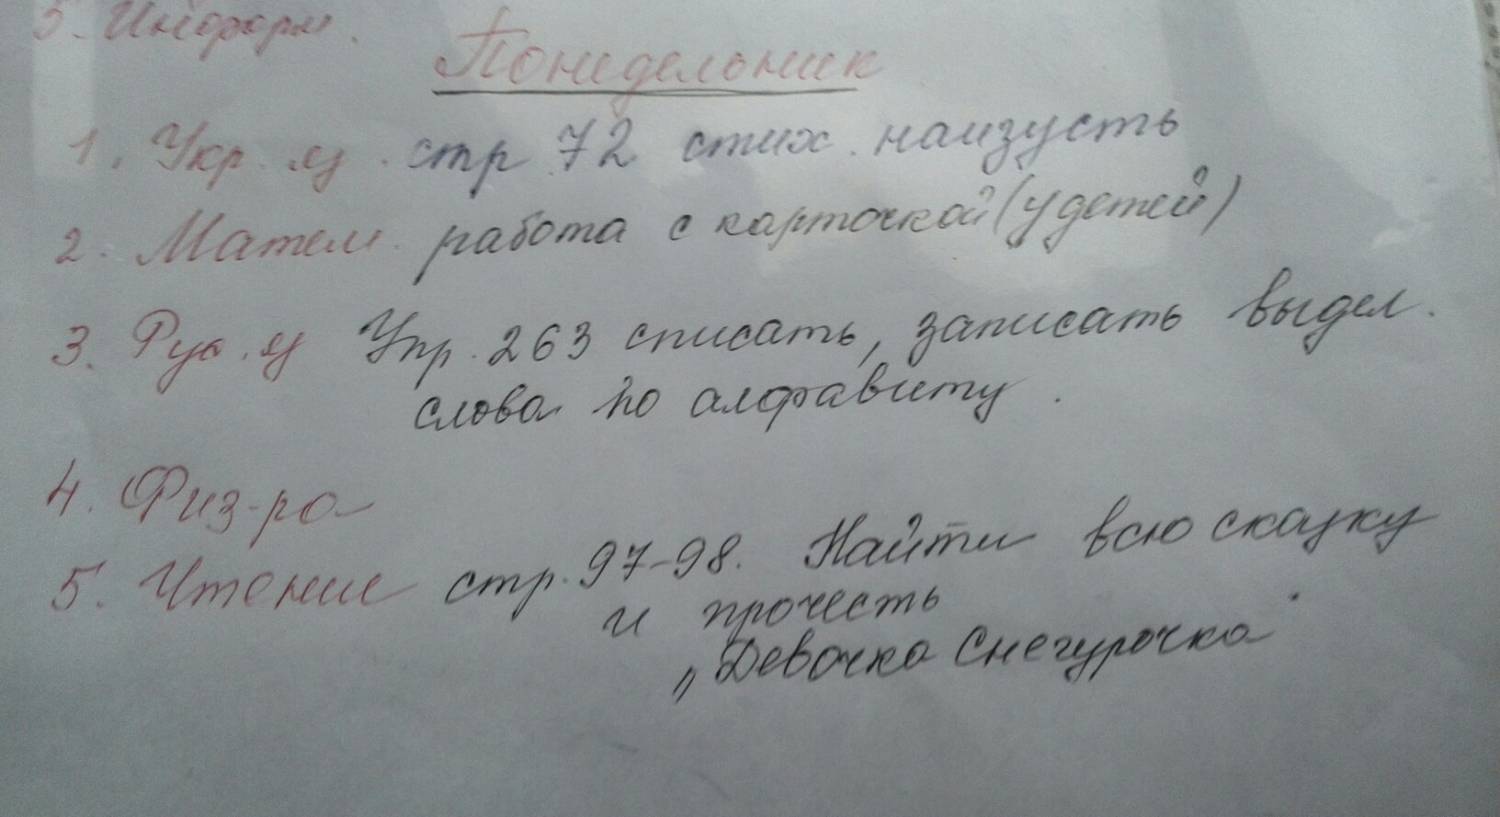 5. Информ.
Понидельник
1. Укр. яз. стр 72 стих. наизусть
2. Матем. работа с карточкой (у детей)
3. Рус. яз Упр. 263 списать, записать выдел.
слова по алфавиту.
4. Физ-ра
5. Чтение стр. 97-98. Найти всю сказку
и прочесть
„Девочка Снегурочка"